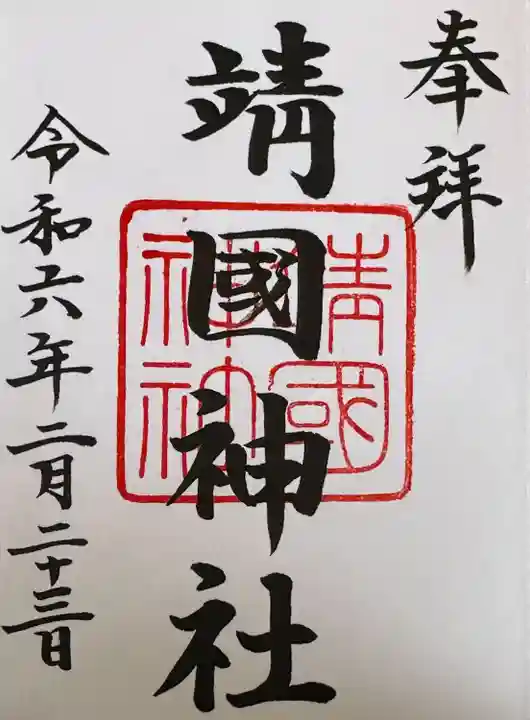 奉拝
靖國神社
靖國神社
令和六年二月二十三日